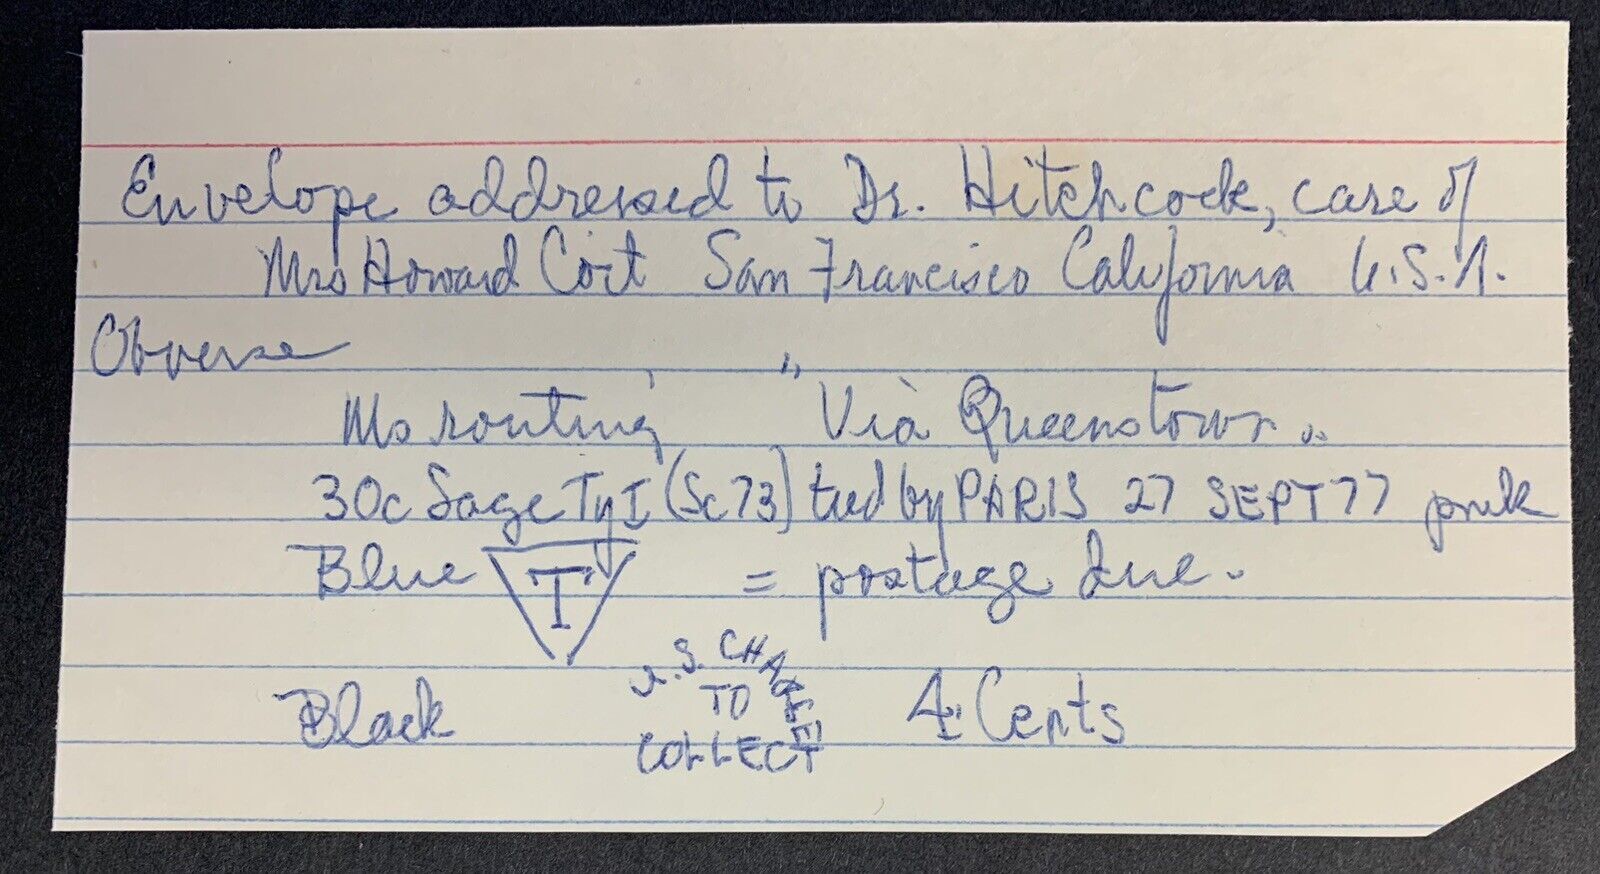 Envelope addressed to Dr. Hitchcock, care of
Mrs Howard Coit San Francisco California U.S.A.
Obverse
Ms routing " Via Queenstown "
30c Sage Ty I (Sc 73) tied by PARIS 27 SEPT 77 pmk
Blue T = postage due.
Black U.S. CHARGE TO COLLECT 4 Cents